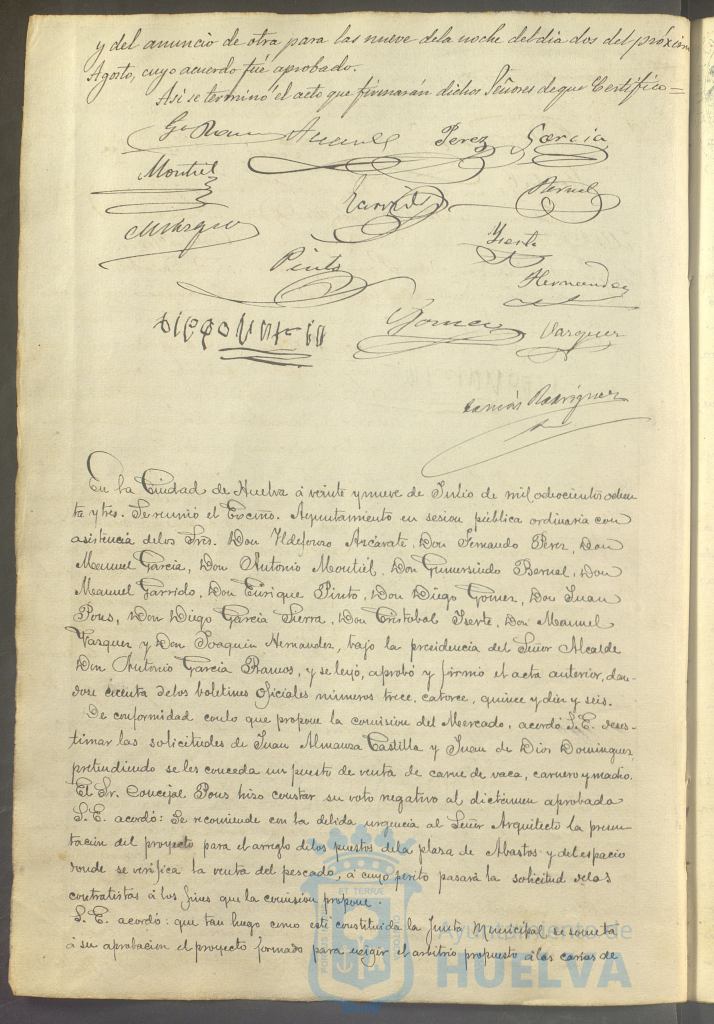 y del anuncio de otra para las nueve dela noche del dia dos del próximo
Agosto, cuyo acuerdo fué aprobado.
Asi se terminó el acto que firmarán dichos Señores de que Certifico=
Perez García
Montiel
Garrido Bernal
Marquez
Yserte
Pinto
Hernandez
Gomez Vazquez
Tomás Rodriguez
En la Ciudad de Huelva á veinte y nueve de Julio de mil ochocientos ochen
ta y tres. Se reunio el Excmo. Ayuntamiento en sesion pública ordinaria con
asistencia delos Sres. Don Yldefonso Azcárate, Don Fernando Perez, Don
Manuel García, Don Antonio Montiel, Don Gumersindo Bernal, Don
Manuel Garrido, Don Enrique Pinto, Don Diego Gomez, Don Juan
Pons, Don Diego García Sierra, Don Cristobal Yserte, Don Manuel
Vazquez y Don Joaquin Hernandez, bajo la presidencia del Señor Alcalde
Don Antonio García Ramos, y se leyó, aprobó y firmó el acta anterior, dan-
dose cuenta delos boletines Oficiales números trece, catorce, quince y diez y seis.
De conformidad conlo que propone la comision del Mercado, acordó S.E. deses-
timar las solicitudes de Juan Almanza Castilla y Juan de Dios Dominguez,
pretendiendo se les conceda un puesto de venta de carne de vaca, carnero y macho.
El Sr. Concejal Pons hizo constar su voto negativo al dictámen aprobado
S.E. acordó: Se recomiende con la debida urgencia al Señor Arquitecto la presen
tacion del proyecto para el arreglo delos puestos dela plaza de Abastos y del espacio
donde se verifica la venta del pescado, á cuyo perito pasará la solicitud delos
contratistas á los fines que la comision propone.
S.E. acordó: que tan luego como esté constituida la Junta Municipal se someta
á su aprobacion el proyecto formado para exigir el arbitrio propuesto á las carnes de
ET TERRÆ
Ayuntamiento de
HUELVA